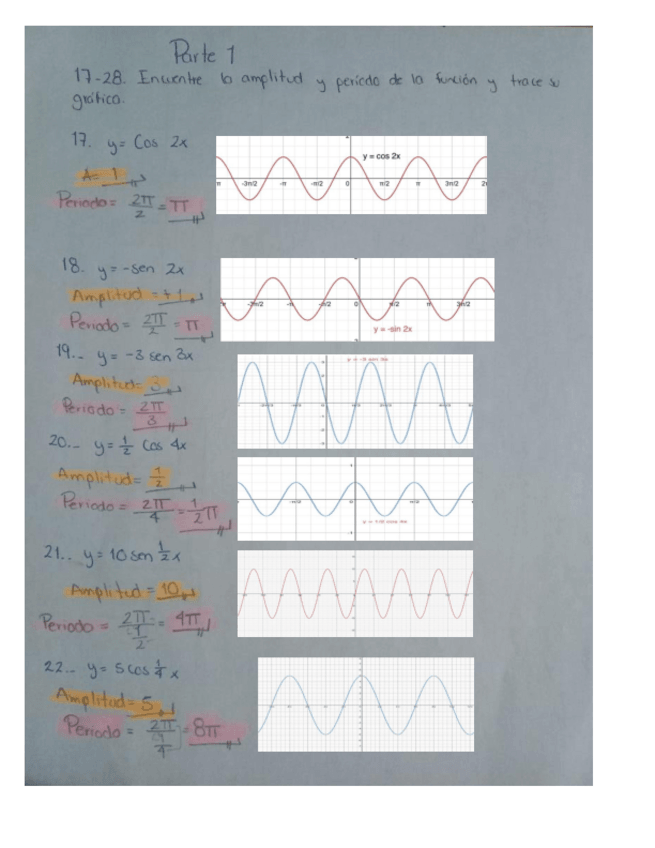 Parte 1
17-28. Encuentre la amplitud y periodo de la función y trace su
gráfica.
17. y= Cos 2x
A= 1
Periodo= 2π/2 = π
y = cos 2x
-3π/2 -π -π/2 0 π/2 π 3π/2
18. y= -sen 2x
Amplitud = +1
Periodo = 2π/2 = π
-3π/2 -π -π/2 0 π/2 π 3π/2
y = -sin 2x
19.- y= -3 sen 3x
Amplitud= 3
Periodo = 2π/3
y = -3 sin 3x
20.- y= 1/2 Cos 4x
Amplitud= 1/2
Periodo = 2π/4 = 1/2 π
y = 1/2 cos 4x
21.. y= 10 sen 1/2 x
Amplitud = 10
Periodo = 2π/(1/2) = 4π
22.. y= 5 cos 1/4 x
Amplitud= 5
Periodo = 2π/(1/4) = 8π